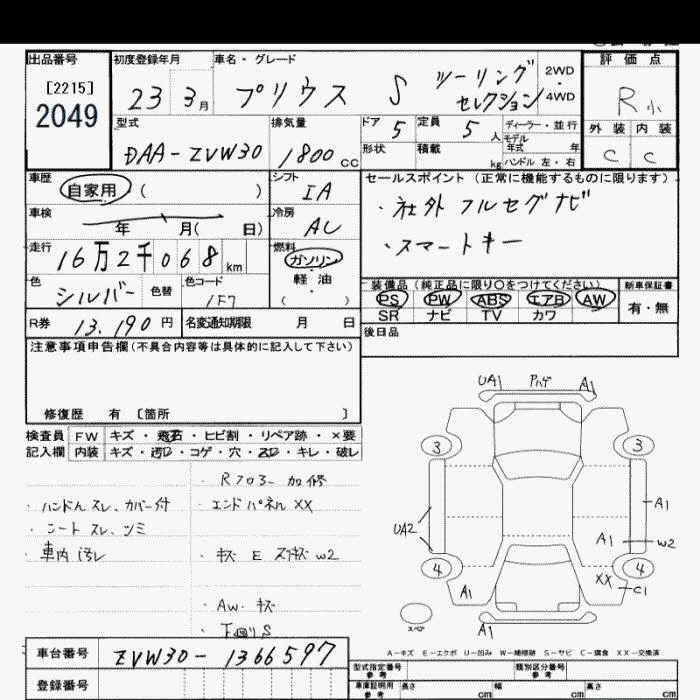 出品番号
[2215]
2049
初度登録年月
23 3月
車名・グレード
プリウス S ツーリング
セレクション
2WD
・
4WD
評価点
R
外装 内装
C C
型式
DAA-ZVW30
排気量
1800 CC
ドア 5
定員 5 人
形状
積載 kg
ディーラー・並行
モデル
年式 年
ハンドル 左・右
車歴
自家用 ( )
シフト
IA
車検
年 月( 日)
冷房
AC
走行
16万2千068 km
燃料
ガソリン
軽油
( )
色
シルバー
色替
色コード
1F7
R券 13,190円
名変通知期限 月 日
セールスポイント (正常に機能するものに限ります)
・社外 フルセグナビ
・スマートキー
装備品 (純正品に限り○をつけてください)
PS PW ABS エアB AW
SR ナビ TV カワ
新車保証書
有・無
後日品
注意事項申告欄(不具合内容等は具体的に記入して下さい)
修復歴 有 [箇所 ]
検査員 FW キズ・飛石・ヒビ割・リペア跡・×要
記入欄 内装 キズ・汚れ・コゲ・穴・スレ・キレ・破レ
・ハンドルスレ、カバー付
・シートスレ、シミ
・車内汚レ
・Rフロアー 加修
エンドパネル XX
・キズ E W2
・AW キズ
・下廻りS
UA1 A1
3 3
UA2
A1
A1 W2
4 4
A1 XX C1
A1
A-キズ E-エクボ U-凹み W-補修跡 S-サビ C-腐食 XX-交換済
車台番号 ZVW30-1366597
登録番号
型式指定番号
参考
類別区分番号
参考
車庫証明用
参考
長さ cm 幅 cm 高さ cm